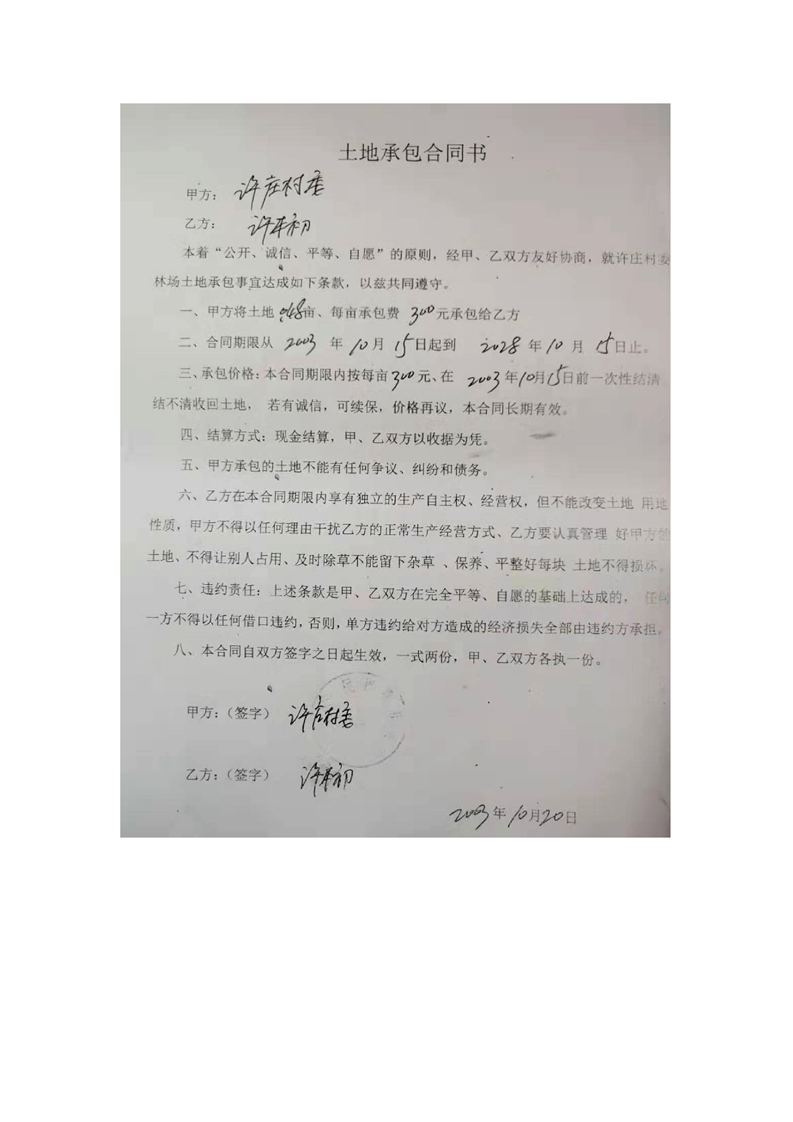 土地承包合同书
甲方：许庄村委
乙方：许初
本着“公开、诚信、平等、自愿”的原则，经甲、乙双方友好协商，就许庄村委
林场土地承包事宜达成如下条款，以兹共同遵守。
一、甲方将土地 亩、每亩承包费 300元承包给乙方
二、合同期限从 2003 年 10月 15日起到 2028 年 10 月 15日止。
三、承包价格：本合同期限内按每亩300元、在 2003年10月15日前一次性结清
结不清收回土地， 若有诚信，可续保，价格再议，本合同长期有效。
四、结算方式：现金结算，甲、乙双方以收据为凭。
五、甲方承包的土地不能有任何争议、纠纷和债务。
六、乙方在本合同期限内享有独立的生产自主权、经营权，但不能改变土地 用地
性质，甲方不得以任何理由干扰乙方的正常生产经营方式、乙方要认真管理 好甲方的
土地、不得让别人占用、及时除草不能留下杂草 、保养、平整好每块 土地不得损坏。
七、违约责任：上述条款是甲、乙双方在完全平等、自愿的基础上达成的， 任何
一方不得以任何借口违约，否则，单方违约给对方造成的经济损失全部由违约方承担。
八、本合同自双方签字之日起生效，一式两份，甲、乙双方各执一份。
甲方：（签字） 许庄村委
乙方：（签字） 许初
2003年10月20日